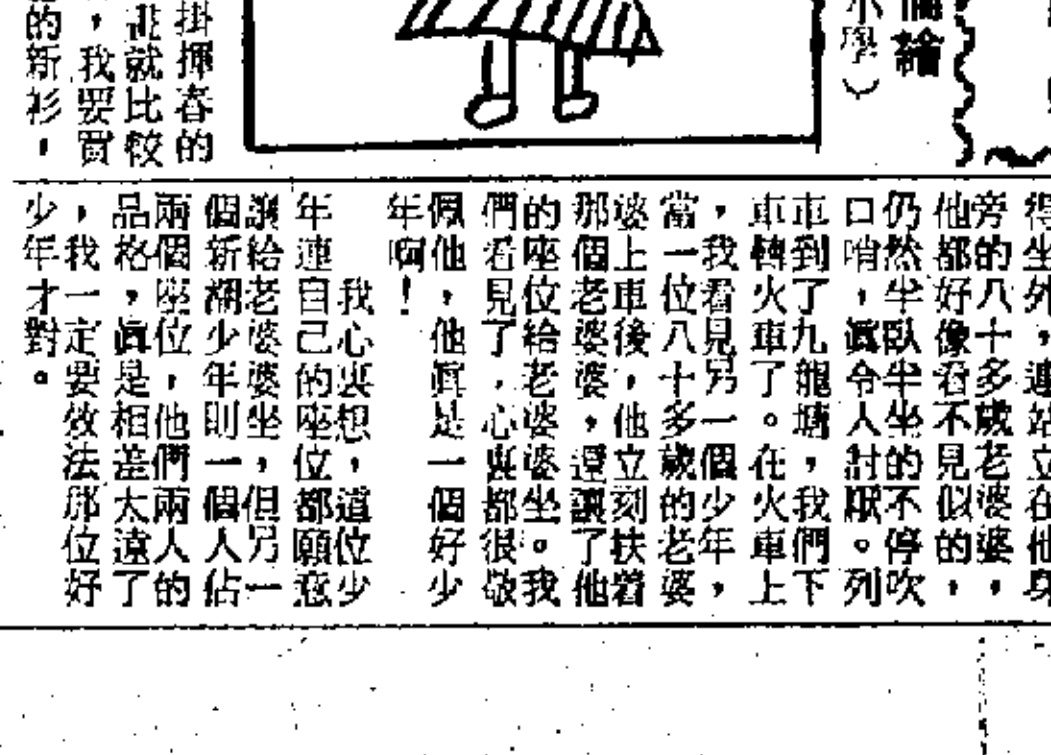 倫繪
小學）
掛揮春的
畫就比較
，我要買
的新衫，
得坐外，連站立在他身
旁的八十多歲老婆婆，
他都好像看不見似的，
仍然半臥半坐的不停吹
口哨，眞令人討厭。列
車到了九龍塘，我們下
車轉火車了。在火車上
，我看見另一個少年，
當一位八十多歲的老婆
婆上車後，他立刻扶着
那個老婆婆，還讓了他
的座位給老婆婆坐。我
們看見了，心裏都很敬
佩他，他眞是一個好少
年啊！
我心裏想，這位少
年連自己的座位都願意
讓給老婆婆坐，但另一
個新潮少年則一個人佔
兩個座位，他們兩人的
品格，眞是相差太遠了
，我一定要效法那位好
少年才對。